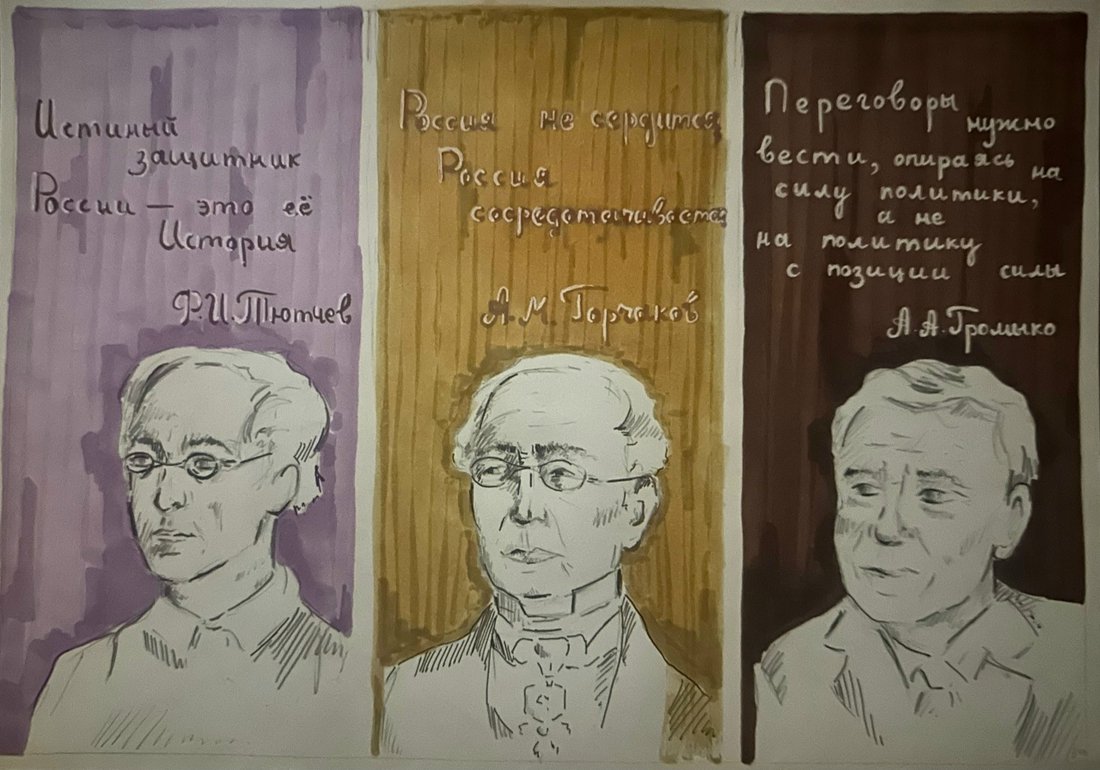 Истиный
защитник
России — это её
История
Ф.И.Тютчев
Россия не сердится
Россия
сосредотачивается
А.М. Горчаков
Переговоры
нужно
вести, опираясь
на
силу политики,
а не
на политику
с позиции силы
А.А.Громыко